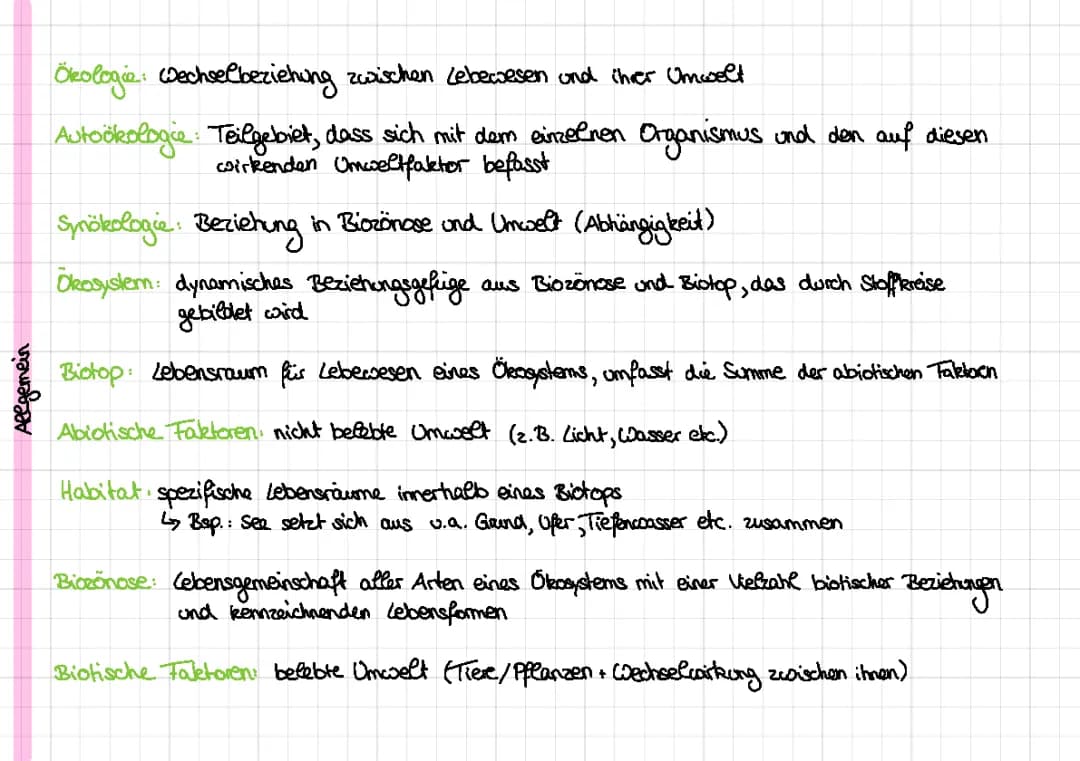 Allgemein
Ökologie: Wechselbeziehung zwischen Lebewesen und ihrer Umwelt
Autoökologie: Teilgebiet, dass sich mit dem einzelnen Organismus und den auf diesen
wirkenden Umweltfaktor befasst
Synökologie: Beziehung in Biozönose und Umwelt (Abhängigkeit)
Ökosystem: dynamisches Beziehungsgefüge aus Biozönose und Biotop, das durch Stoffkreise
gebildet wird
Biotop: Lebensraum für Lebewesen eines Ökosystems, umfasst die Summe der abiotischen Faktoren
Abiotische Faktoren: nicht belebte Umwelt (z.B. Licht, Wasser etc.)
Habitat: spezifische Lebensräume innerhalb eines Biotops
↳ Bsp.: See setzt sich aus u.a. Grund, Ufer, Tiefenwasser etc. zusammen
Biozönose: Lebensgemeinschaft aller Arten eines Ökosystems mit einer Vielzahl biotischer Beziehungen
und kennzeichnenden Lebensformen
Biotische Faktoren: belebte Umwelt (Tiere/Pflanzen + Wechselwirkung zwischen ihnen)